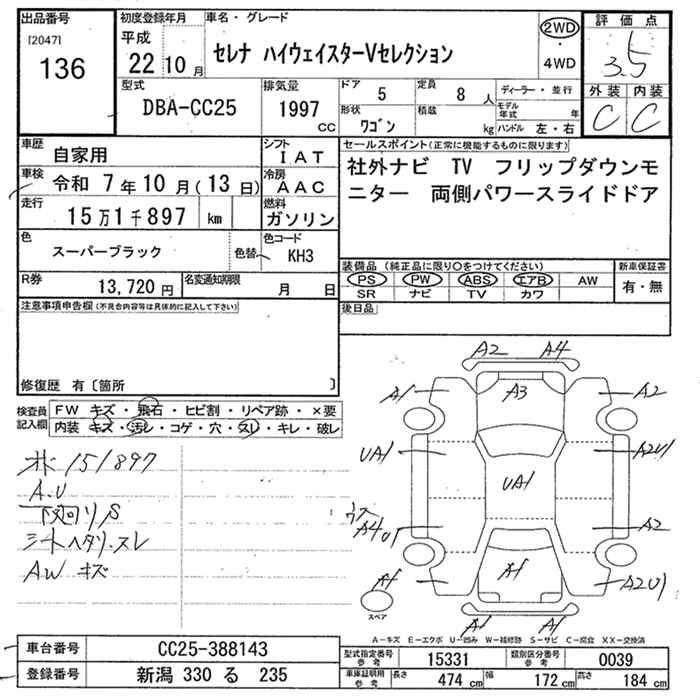 出品番号 初度登録年月 車名・グレード 2WD 評価点
[2047] 平成 セレナ ハイウェイスターVセレクション ・ 3.5
136 22 10月 4WD
型式 排気量 ドア 5 定員 8人 ディーラー・並行 外装 内装
DBA-CC25 1997 CC 形状 ワゴン 積載 kg モデル年式 年 C C
ハンドル 左・右
車歴 自家用 シフト IAT セールスポイント(正常に機能するものに限ります)
車検 令和 7年10月(13日) 冷房 AAC 社外ナビ TV フリップダウンモ
走行 15万1千897 km 燃料 ガソリン ニター 両側パワースライドドア
色 スーパーブラック 色替 色コード KH3
装備品(純正品に限り〇をつけてください) 新車保証書
R券 13,720円 名変通知期限 月 日 PS PW ABS エアB AW 有・無
SR ナビ TV カワ
注意事項申告欄(不具合内容等は具体的に記入して下さい) 後日品
修復歴 有〔箇所 〕
検査員記入欄 FW キズ・飛石・ヒビ割・リペア跡・×要
内装 キズ・汚レ・コゲ・穴・スレ・キレ・破レ
A2 A4
A1 A3 A2
UA1 UA1 A2U1
151897
A.U
下廻りS
シートヘタリ.スレ
AW キズ
A2
A2U1
A1
スペア
A-キズ E-エクボ U-凹み W-補修跡 S-サビ C-腐食 XX-交換済
車台番号 CC25-388143 型式指定番号 参考 15331 類別区分番号 参考 0039
登録番号 新潟 330 る 235 車庫証明用 参考 長さ 474cm 幅 172cm 高さ 184cm